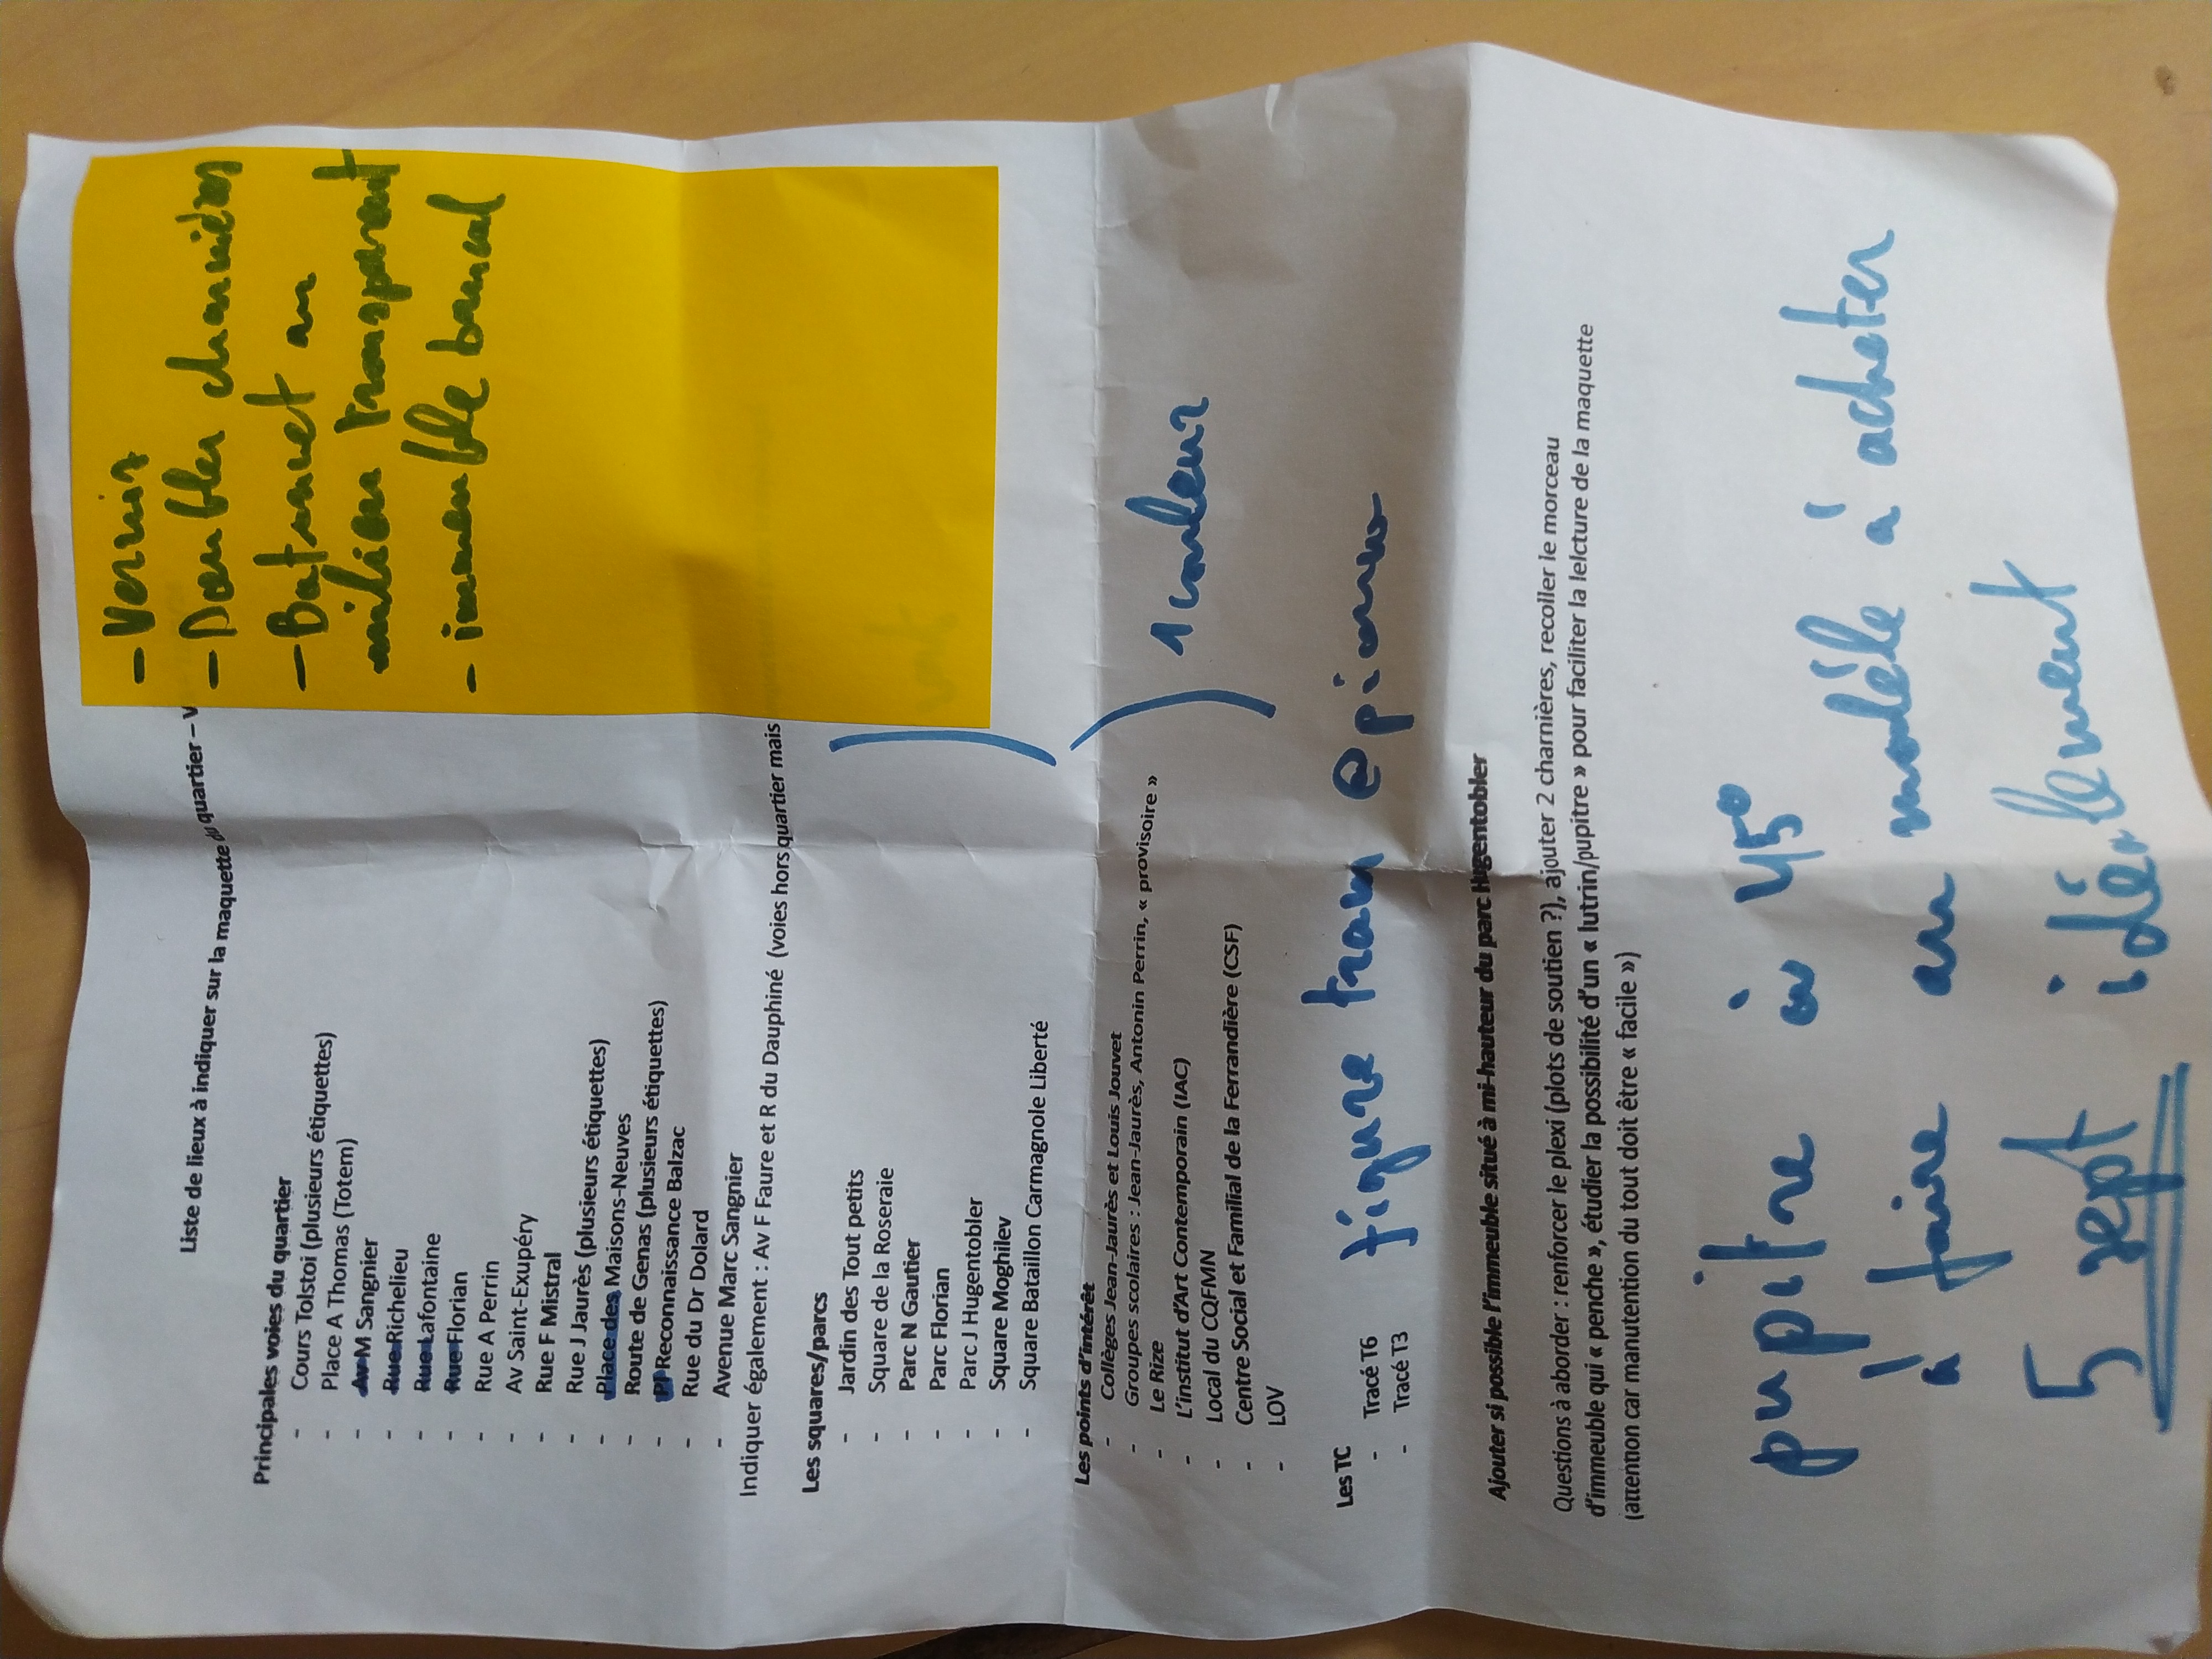 Liste de lieux à indiquer sur la maquette du quartier – v
- Vernis
- Doubler charnières
- Bat runet au
milieu transparent
- immeuble bancal
Principales voies du quartier
- Cours Tolstoi (plusieurs étiquettes)
- Place A Thomas (Totem)
- Av M Sangnier
- Rue Richelieu
- Rue Lafontaine
- Rue Florian
- Rue A Perrin
- Av Saint-Exupéry
- Rue F Mistral
- Rue J Jaurès (plusieurs étiquettes)
- Place des Maisons-Neuves
- Route de Genas (plusieurs étiquettes)
- Pl Reconnaissance Balzac
- Rue du Dr Dolard
- Avenue Marc Sangnier
Indiquer également : Av F Faure et R du Dauphiné (voies hors quartier mais
Les squares/parcs
- Jardin des Tout petits
- Square de la Roseraie
- Parc N Gautier
- Parc Florian
- Parc J Hugentobler
- Square Moghilev
- Square Bataillon Carmagnole Liberté
Les points d'intérêt
- Collèges Jean-Jaurès et Louis Jouvet
- Groupes scolaires : Jean-Jaurès, Antonin Perrin, « provisoire »
- Le Rize
- L'institut d'Art Contemporain (IAC)
- Local du CQFMN
- Centre Social et Familial de la Ferrandière (CSF)
- LOV
) 1 couleur
Les TC
- Tracé T6
- Tracé T3
figure tram
Ajouter si possible l'immeuble situé à mi-hauteur du parc Hugentobler
Questions à aborder : renforcer le plexi (plots de soutien ?), ajouter 2 charnières, recoller le morceau
d'immeuble qui « penche », étudier la possibilité d'un « lutrin/pupitre » pour faciliter la lelcture de la maquette
(attention car manutention du tout doit être « facile »)
pupitre à 45°
à faire ou modèle à acheter
5 sept idéalement